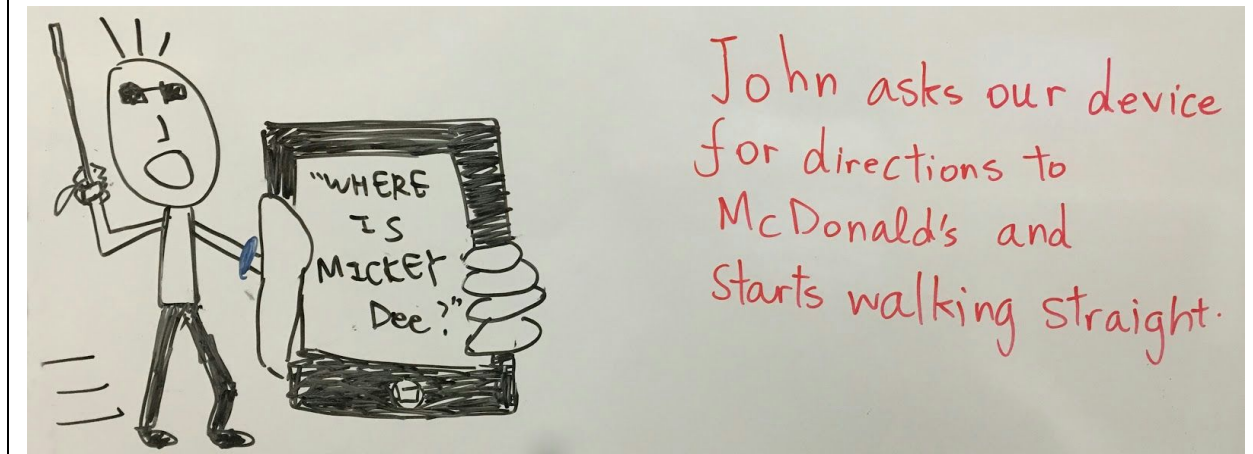 "WHERE
IS
MICKEY
Dee?"
John asks our device
for directions to
McDonald's and
starts walking straight.